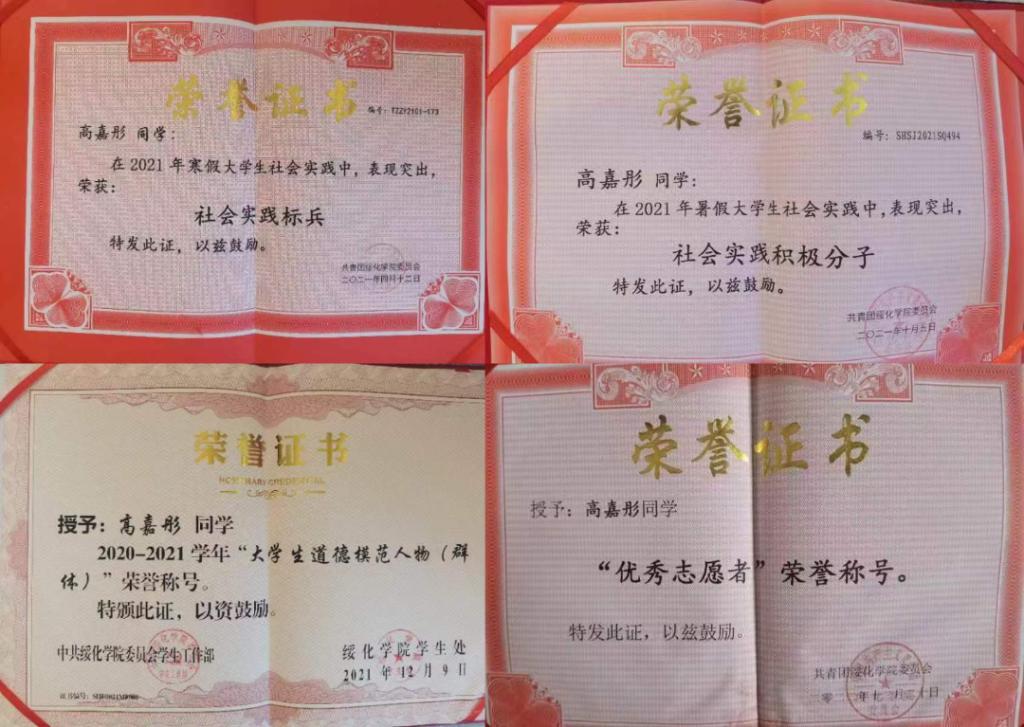 荣誉证书
编号：TZZY2101-173
高嘉彤 同学：
在2021年寒假大学生社会实践中，表现突出，
荣获：
社会实践标兵
特发此证，以兹鼓励。
共青团绥化学院委员会
二〇二一年四月十二日
荣誉证书
编号：SHSJ2021SQ494
高嘉彤 同学：
在2021年暑假大学生社会实践中，表现突出，
荣获：
社会实践积极分子
特发此证，以兹鼓励。
共青团绥化学院委员会
二〇二一年十月五日
荣誉证书
HONORARY CREDENTIAL
授予：高嘉彤 同学
2020-2021学年“大学生道德模范人物（群
体）”荣誉称号。
特颁此证，以资鼓励。
中共绥化学院委员会学生工作部
绥化学院学生处
2021年12月9日
证书编号：
荣誉证书
授予：高嘉彤同学
“优秀志愿者”荣誉称号。
特发此证，以兹鼓励。
共青团绥化学院委员会